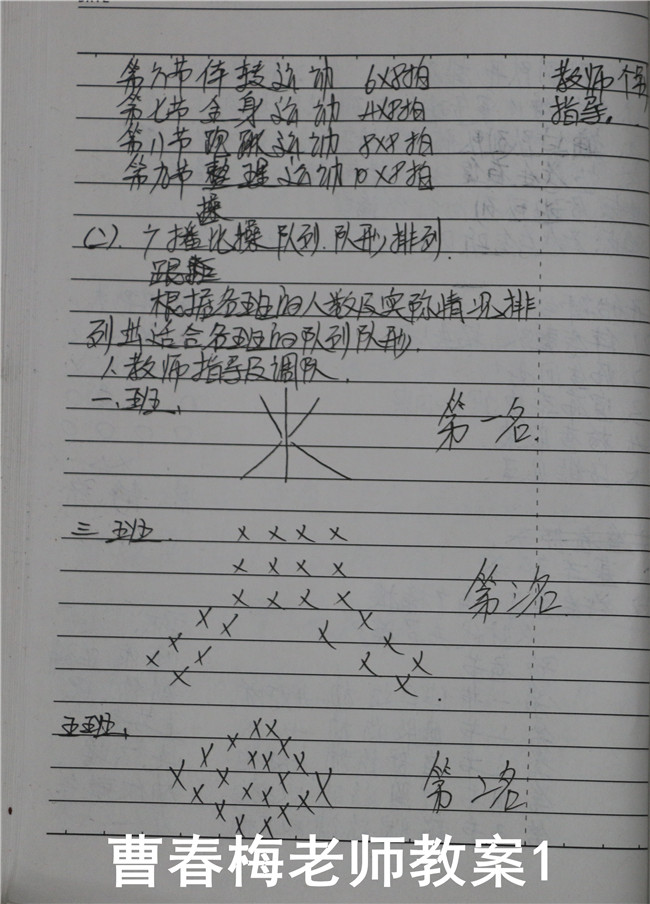 第六节 体转运动 6×8拍
教师个别
第七节 全身运动 4×8拍
指导。
第八节 跳跃运动 8×8拍
第九节 整理运动 10×8拍
操
(二). 广播比操队列.队形排列.
根据各班的人数及实际情况排
列出适合各班的队列队形.
人教师指导及调队.
一.班.
第一名.
三班.
第二名.
五班.
第2名
曹春梅老师教案1